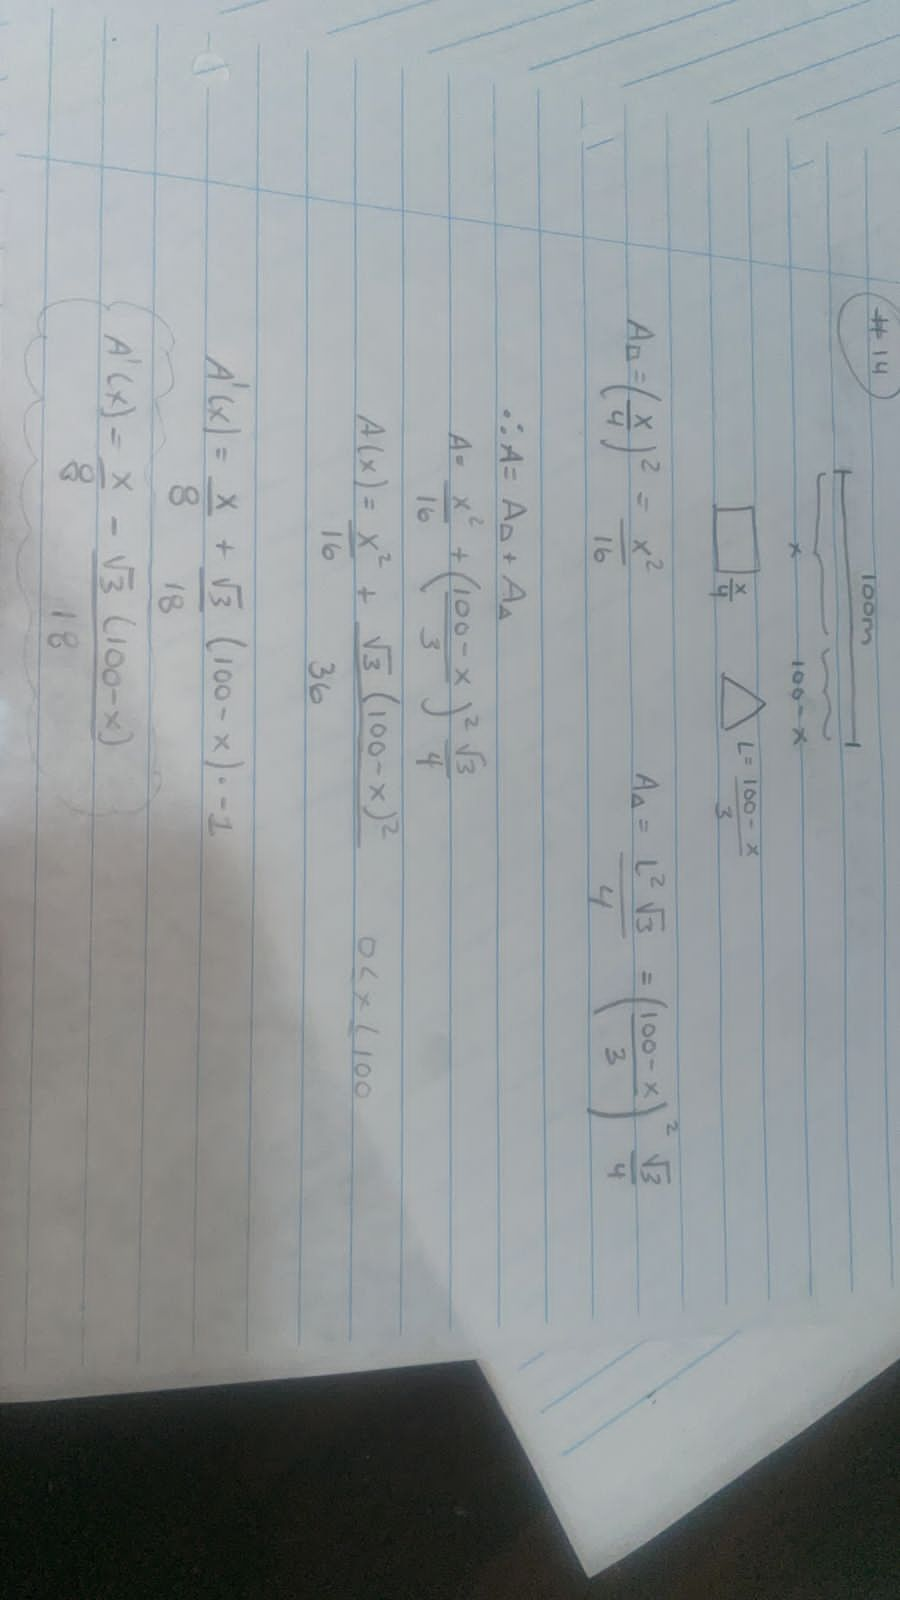 #14
100m
x 100-x
x/4 L = 100-x/3
A□ = (x/4)² = x²/16 A△ = L²√3/4 = (100-x/3)² √3/4
∴ A = A□ + A△
A = x²/16 + (100-x/3)² √3/4
A(x) = x²/16 + √3(100-x)²/36 0<x<100
A'(x) = x/8 + √3/18 (100-x)·-1
A'(x) = x/8 - √3(100-x)/18